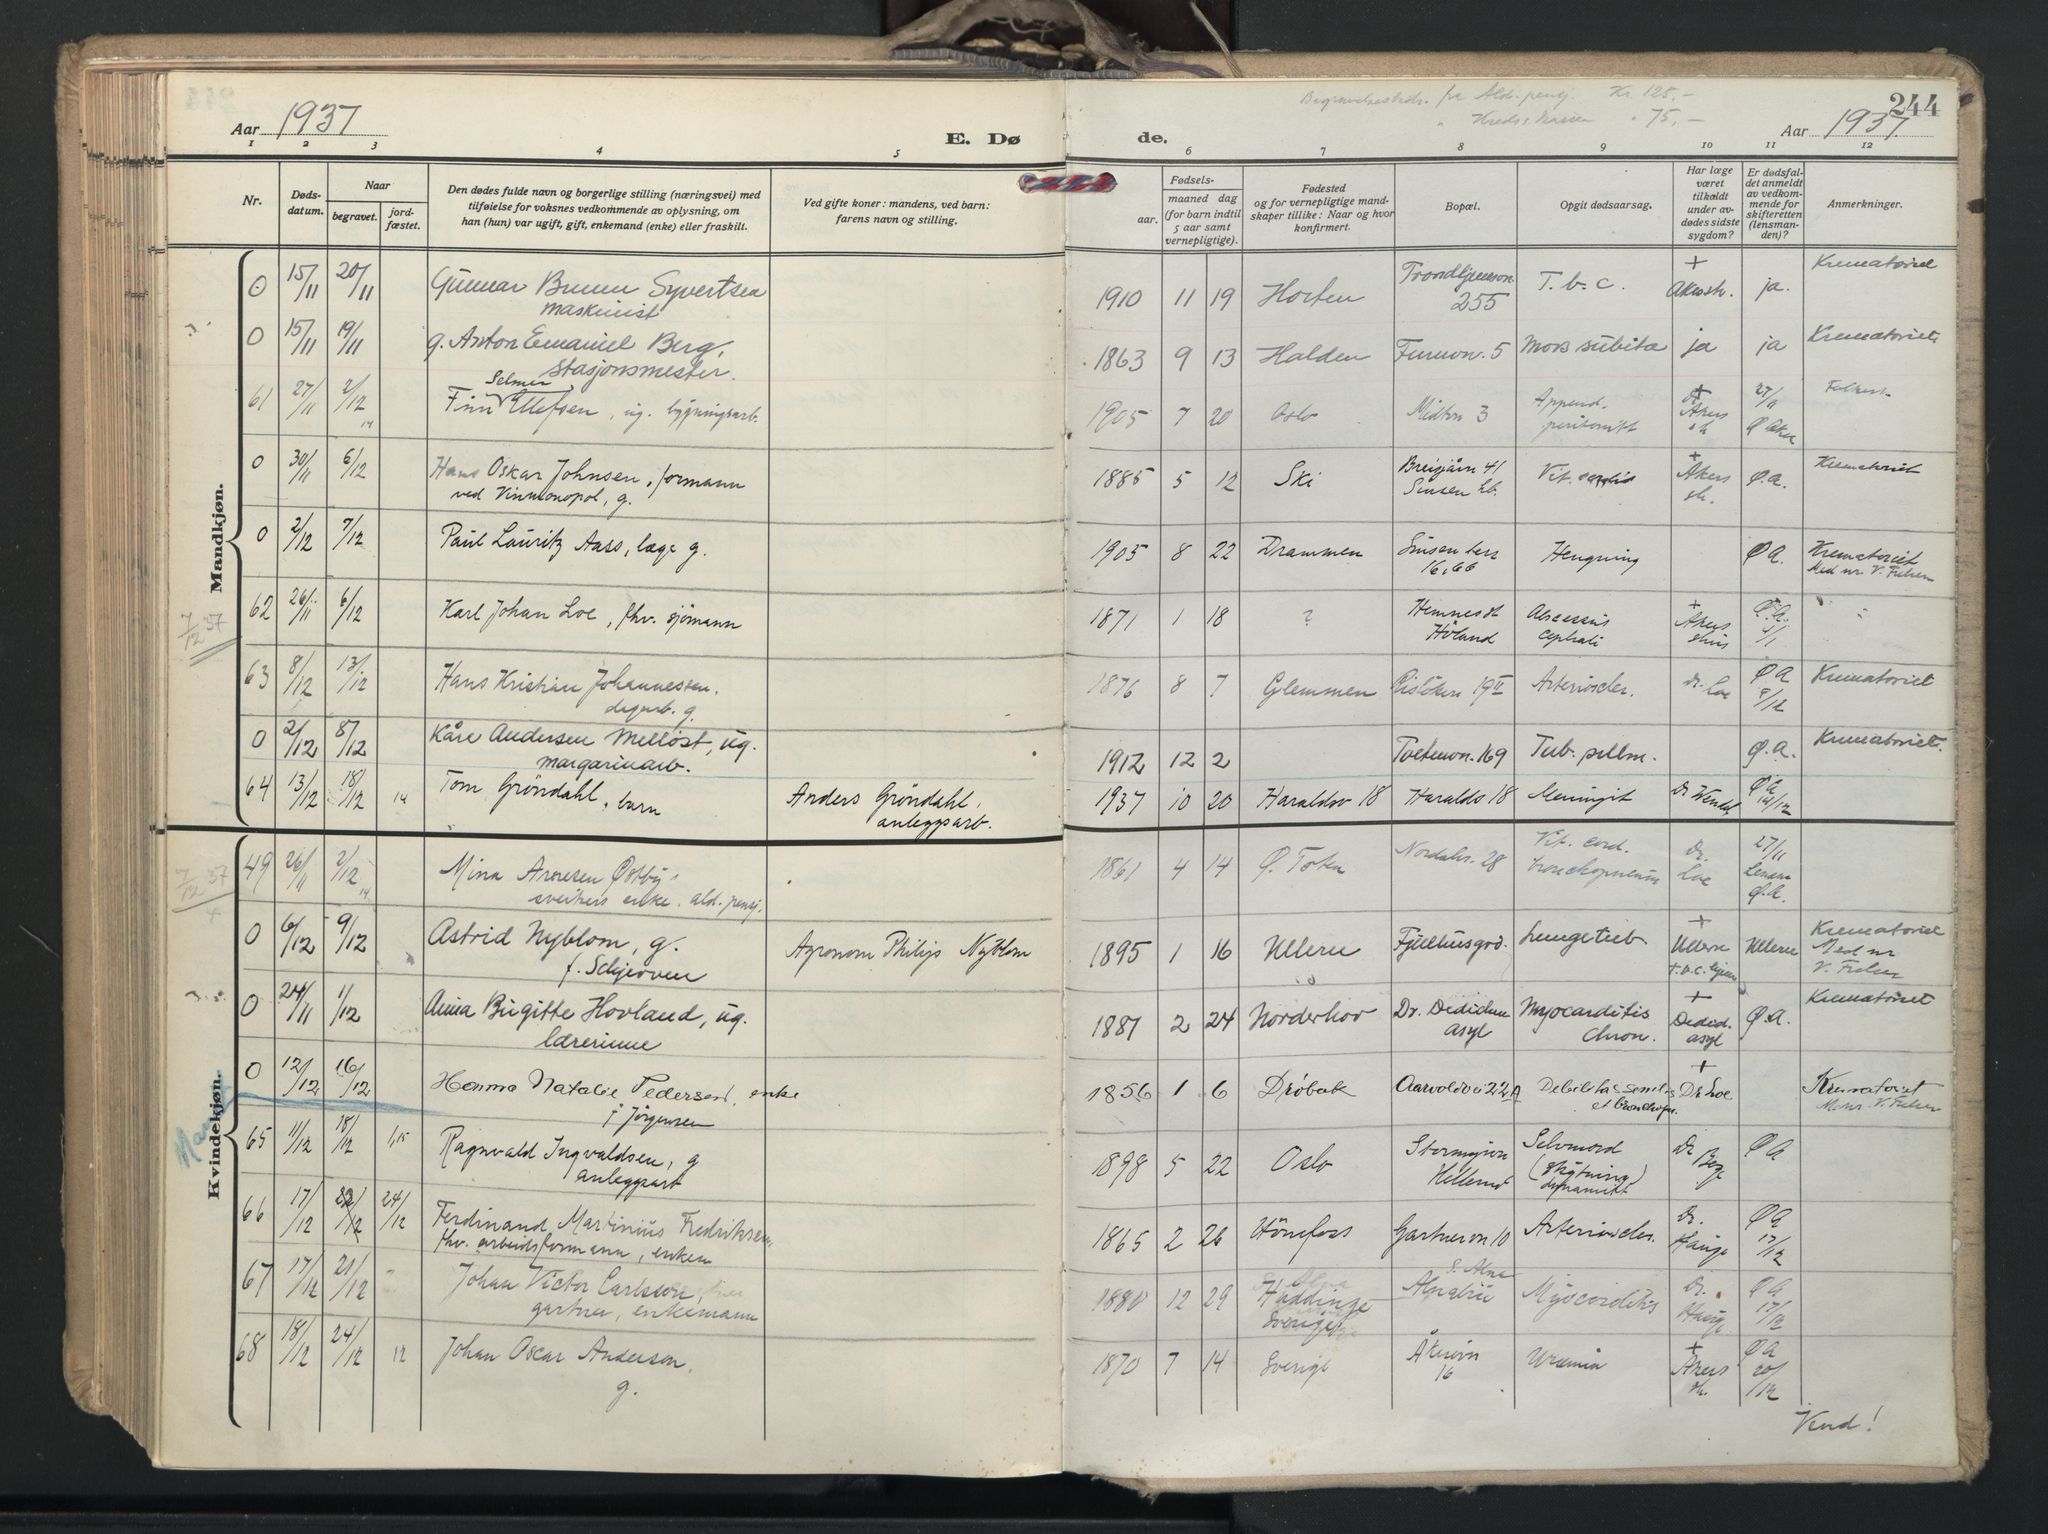 Aar 1937
E. Dø
de.
Kr. 125,-
75,-
244
Aar 1937
1 2 3 4 5 6 7 8 9 10 11 12
Nr.
Døds-
datum.
Naar
begravet.
jord-
fæstet.
Den dødes fulde navn og borgerlige stilling (næringsvei) med
tilføielse for voksnes vedkommende av oplysning, om
han (hun) var ugift, gift, enkemand (enke) eller fraskilt.
Ved gifte koner: mandens, ved barn:
farens navn og stilling.
Fødsels-
aar.
maaned dag
(for barn indtil
5 aar samt
vernepligtige).
Fødested
og for vernepligtige mand-
skaper tillike: Naar og hvor
konfirmert.
Bopæl.
Opgit dødsaarsag.
Har læge
været
tilkaldt
under av-
dødes sidste
sygdom?
Er dødsfal-
det anmeldt
av vedkom-
mende for
skifteretten
(lensman-
den)?
Anmerkninger.
Mandkjøn.
0 15/11 20/11 Gunnar Bruun Syvertsen
maskinist
1910 11 19 Horten
255 T.b.c. + Akersh. ja. Krematoriet
0 15/11 19/11 g. Anton Emanuel Berg,
stasjonsmester.
1863 9 13 Halden Furuvn. 5 Mors subita ja ja Krematoriet
61 27/11 2/12 14 Finn Selmer Ellefsen, ug. bygningsarb.
1905 7 20 Oslo 3 Append. + Akers sh. 27/11 Ø Aker
0 30/11 6/12 Hans Oskar Johnsen, formann
ved Vinmonopol, g.
1885 5 12 Ski 41 Vit. cordis + Akers sh. Ø.A. Krematoriet
0 2/12 7/12 Paul Lauritz Aass, læge g.
1905 8 22 Drammen Sinsen terr
16, 66 Hengning Ø A. Krematoriet
Med nr. V. Frelsen
7/12 37
62 26/11 6/12 Karl Johan Loe, fhv. sjømann
1871 1 18 ? Hemnes st
Høland Abscessus
+ Akers
shus Ø.A.
63 8/12 13/12 Hans Kristian Johannessen.
g.
1876 8 7 Glemmen 19 II Arterioscler. Dr. Loe Ø A
9/12 Krematoriet
0 2/12 8/12 Kåre Andersen Melløst, ug.
margarinarb.
1912 12 2 169 Tub. pulm. Ø.A. Krematoriet.
64 13/12 18/12 14 Tom Grøndahl, barn
Anders Grøndahl,
anleggsarb.
1937 10 20 Haraldsv 18 Haralds 18 Meningit Ø A
14/12
Kvindekjøn.
7/12 37
49 26/11 2/12 14 Mina Arnesen Østby,
sveisers enke. ald. pensj.
1861 4 14 Ø. Toten Nordahs. 28 Vit. cord.
bronchopneum Dr. Loe 27/11
Lensm
Ø.A.
0 6/12 9/12 Astrid Nyblom, g.
f. Schjeoven
Agronom Philip Nyblom
1895 1 16 Ullern Lungetub. + Ullern Ullern Krematoriet
Med nr
V. Frelsen
0 24/11 1/12 Anna Birgitte Hovland, ug.
lærerinne
1887 2 24 Norderhov Dr. Dedichen
asyl Myocarditis
chron. + Dedich.
asyl Ø.A. Krematoriet
0 12/12 16/12 Hanna Natalie Pedersen, enke
f Jørgensen
1856 1 6 Drøbak Aarvoldv. 22 A Debilitas senilis
et bronchopn. + Dr Loe Krematoriet
M. nr. V. Frelsen
65 11/12 18/12 Ragnvald Ingvaldsen, g
anleggsarb
1898 5 22 Oslo Selvmord
dynamitt Dr Ø A
66 17/12 24/12 Ferdinand Martinius Fredriksen,
fhv. arbeidsformann, enkem
1865 2 26 Hønefoss Gartnervn 10 Arterioscler. Dr.
Hauge Ø A
17/12
67 17/12 21/12 Johan Victor Carlsson,
gartner, enkemann
1880 12 29 Huddinge
Sverige Myocarditis Dr.
Hauge Ø A
17/12
68 18/12 24/12 12 Johan Oscar Andersen,
g.
1870 7 14 Sverige
16 Uræmia + Akers
sh. Ø A
20/12
Vend!